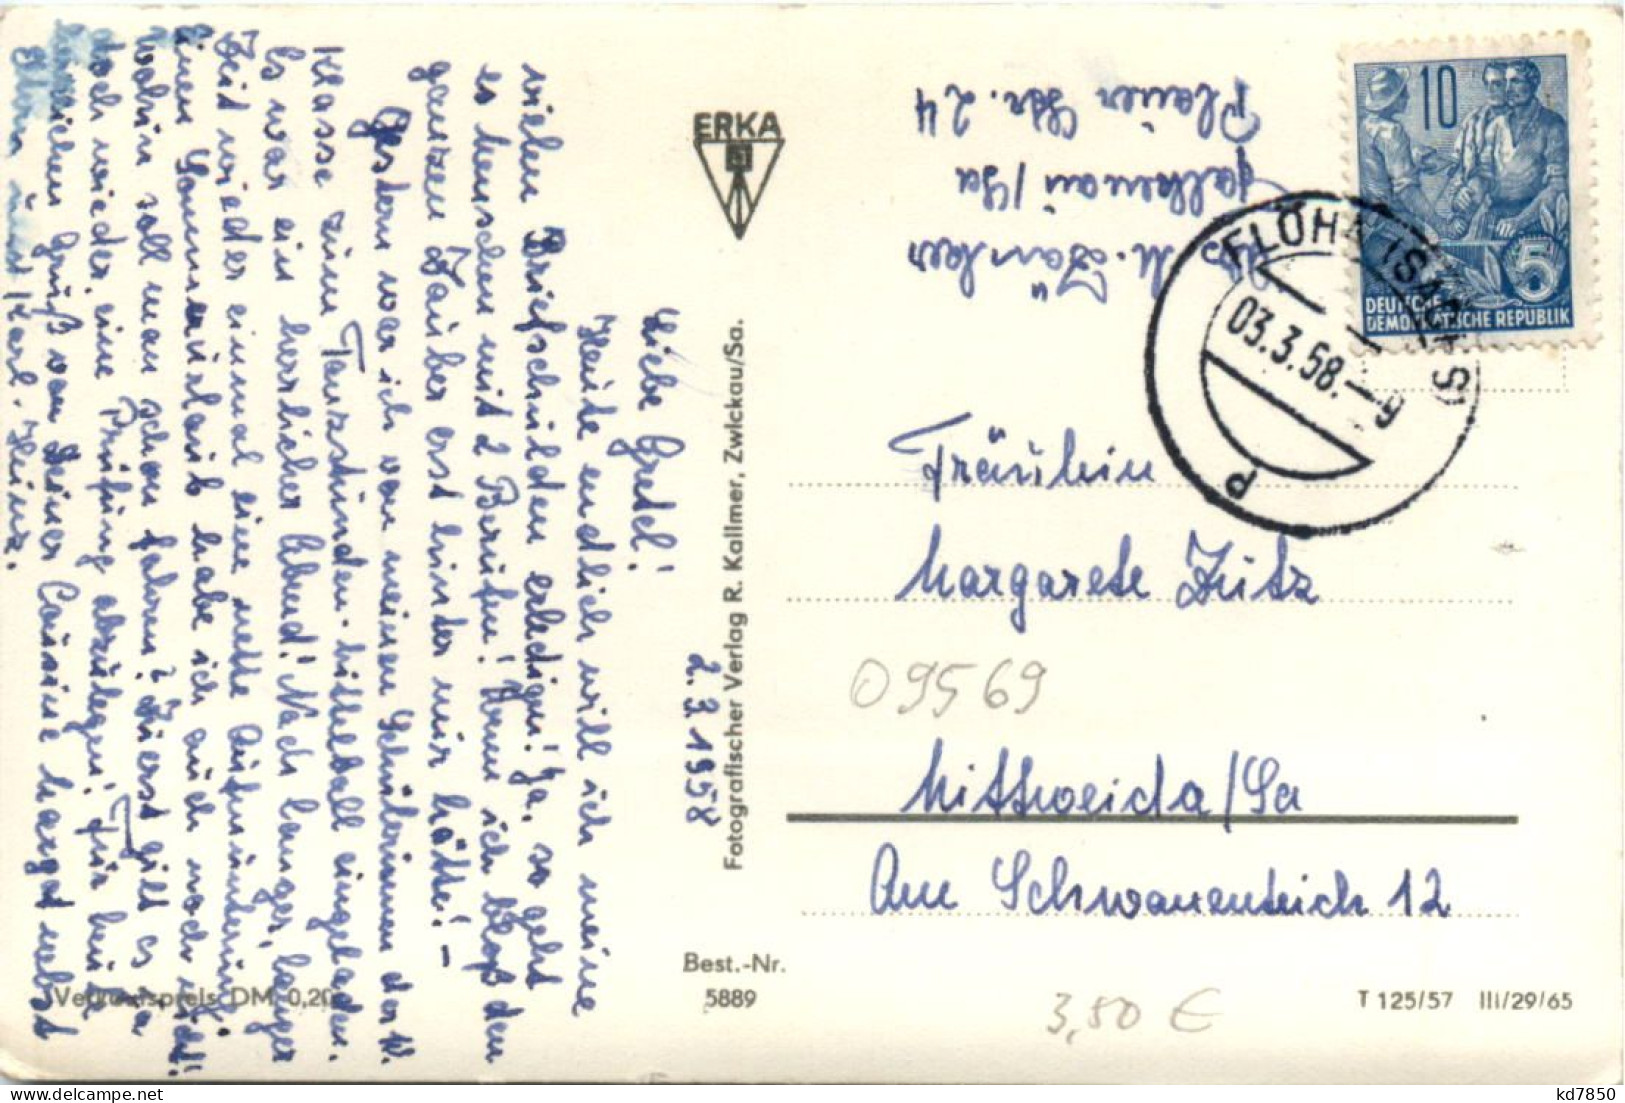 2.3.1958
Liebe Gretel!
Heute endlich will ich meine
vielen Briefschulden erledigen! Ja, so geht
es Menschen mit 2 Berufen! Wenn ich bloß den
ganzen Zauber erst hinter mir hätte! –
Gestern war ich von meinen Schülerinnen der N.
Klasse zum Tanzstunden-Mittelball eingeladen.
Es war ein herrlicher Abend! Nach langer, langer
Zeit wieder einmal eine nette Aufmunterung!
Einen Sommerurlaub habe ich auch noch nicht!
Wohin soll man schon fahren? Zuerst gilt es ja
doch wieder, eine Prüfung abzulegen! Für heute
Gruß von Deiner Cousine Margot nebst
Eltern und Karl-Heinz.
Verkaufspreis DM 0,20
ERKA
Fotografischer Verlag R. Kallmer, Zwickau/Sa.
Best.-Nr.
5889
Abs. M. Jänker
Falkenau/Sa
Plauer Str. 24
10
5
DEUTSCHE
DEMOKRATISCHE REPUBLIK
FLÖHA (SACHS)
03.3.58.-9
P
Fräulein
Margarete Zutz
09569
Mittweida/Sa
Am Schwanenteich 12
3,50 €
T 125/57 III/29/65
kd7850